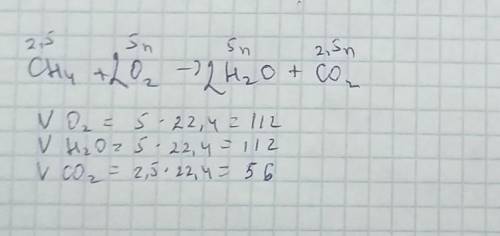 2,5 5n 5n 2,5n
CH4 + 2O2 → 2H2O + CO2
V O2 = 5 · 22,4 = 112
V H2O = 5 · 22,4 = 112
V CO2 = 2,5 · 22,4 = 56